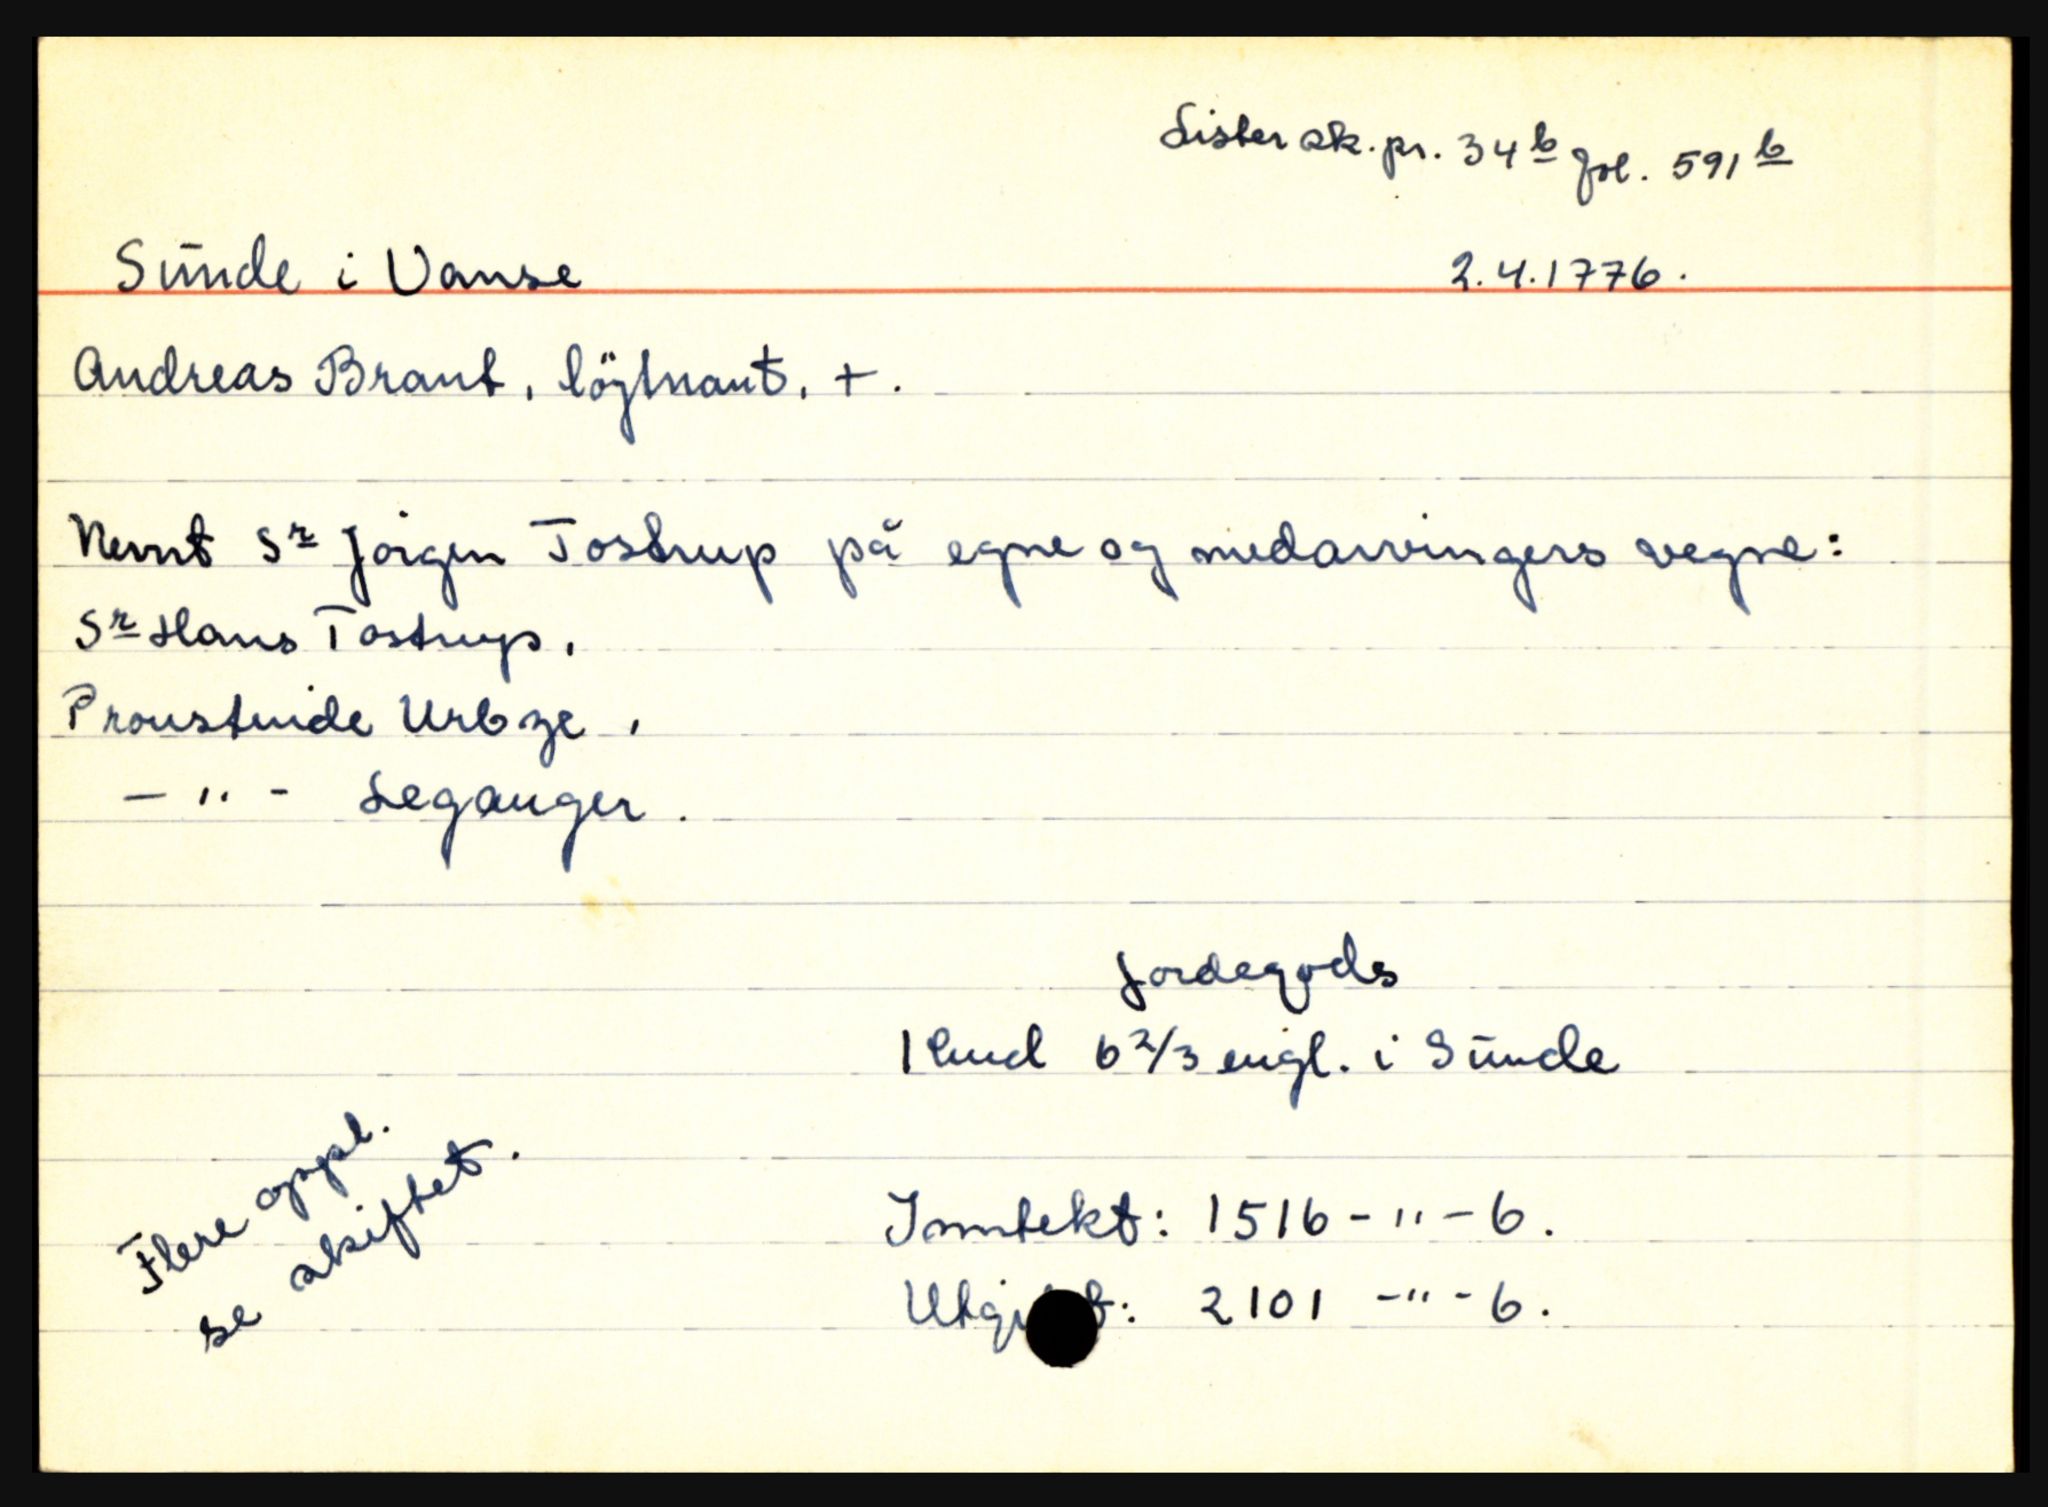 Lister sk. pr. 34b fol. 591b
Sūnde i Vanse 2.4.1776.
Andreas Brant, löjtnant, +.
Nevnt Sr Jörgen Tostrup på egne og medarvingers vegne:
Sr Hans Tostrup,
Proustinde Urbye,
- " - Leganger.
Jordegods
1 hud 6 2/3 engl. i Sūnde
Flere oppl.
se skiftet.
Inntekt: 1516 - " - 6.
2101 - " - 6.